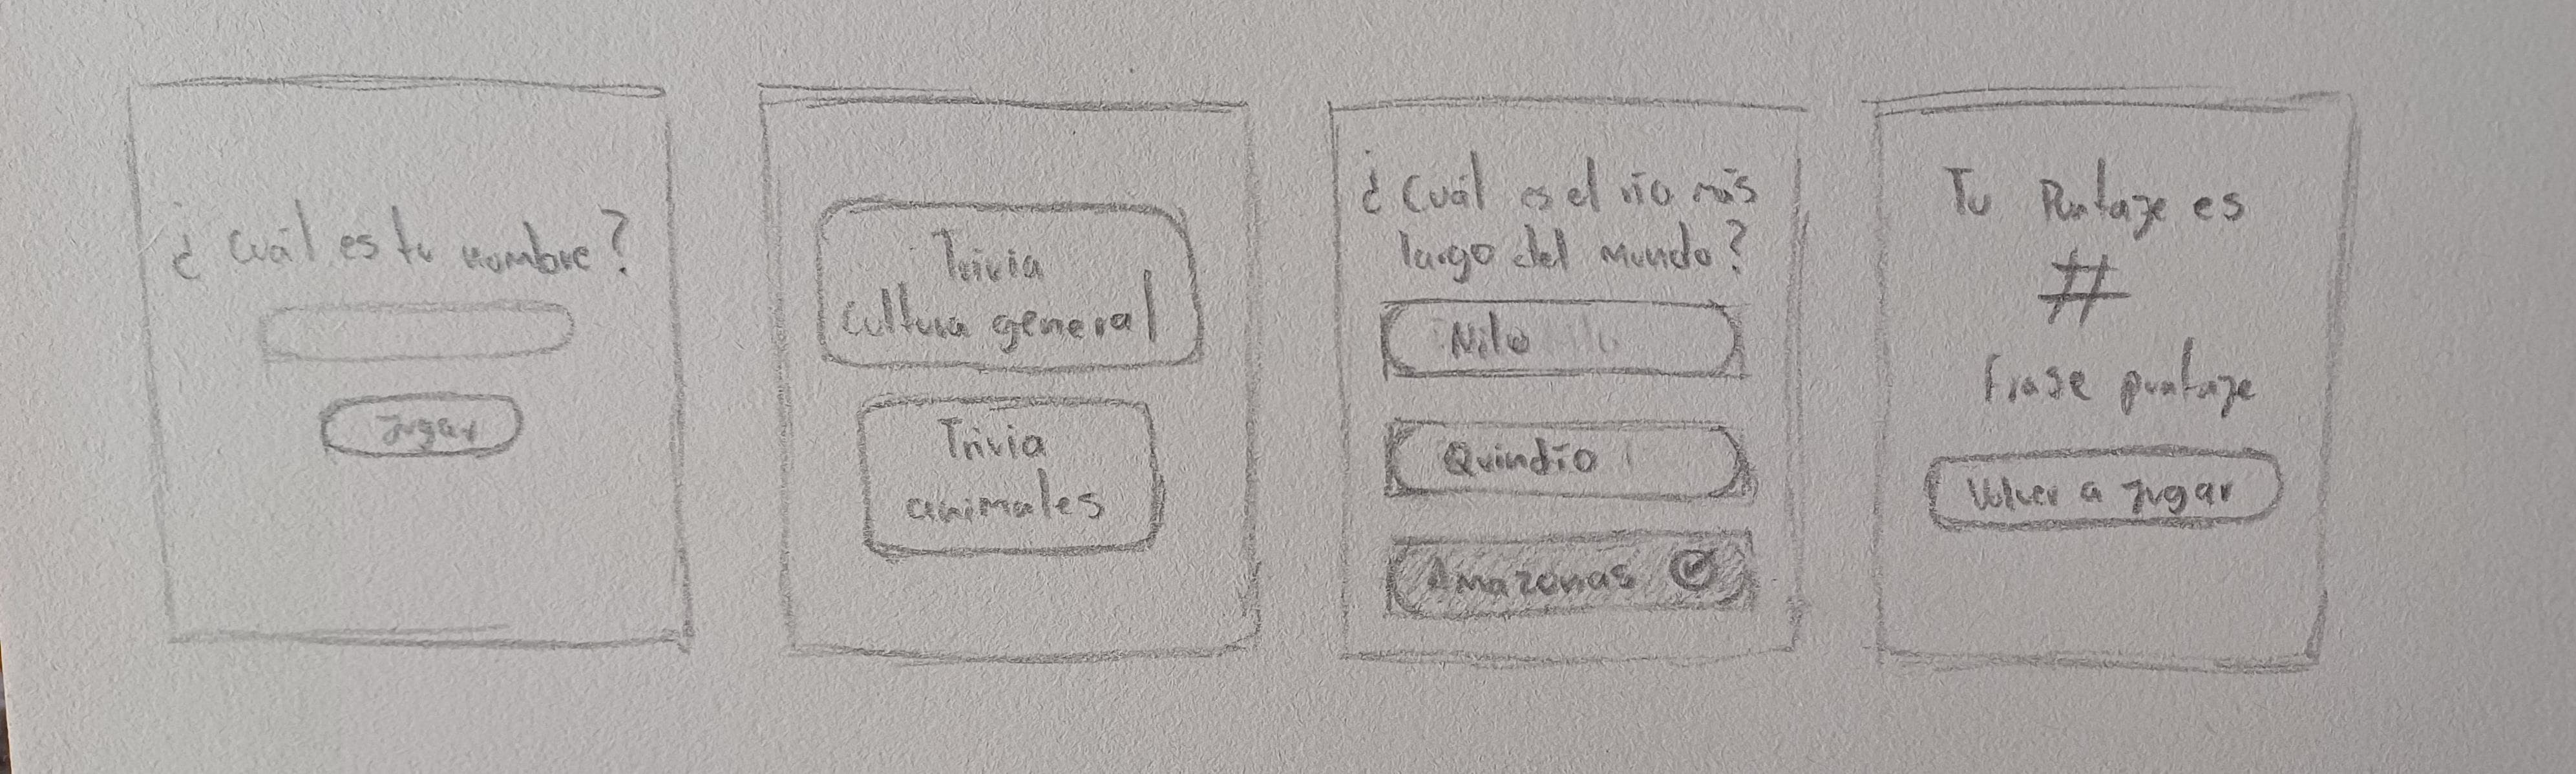 ¿Cuál es tu nombre?
Jugar
Trivia
Cultura general
Trivia
animales
¿Cuál es el río más
largo del mundo?
Nilo
Quindío
Amazonas
Tu Puntaje es
#
Frase puntaje
Volver a jugar